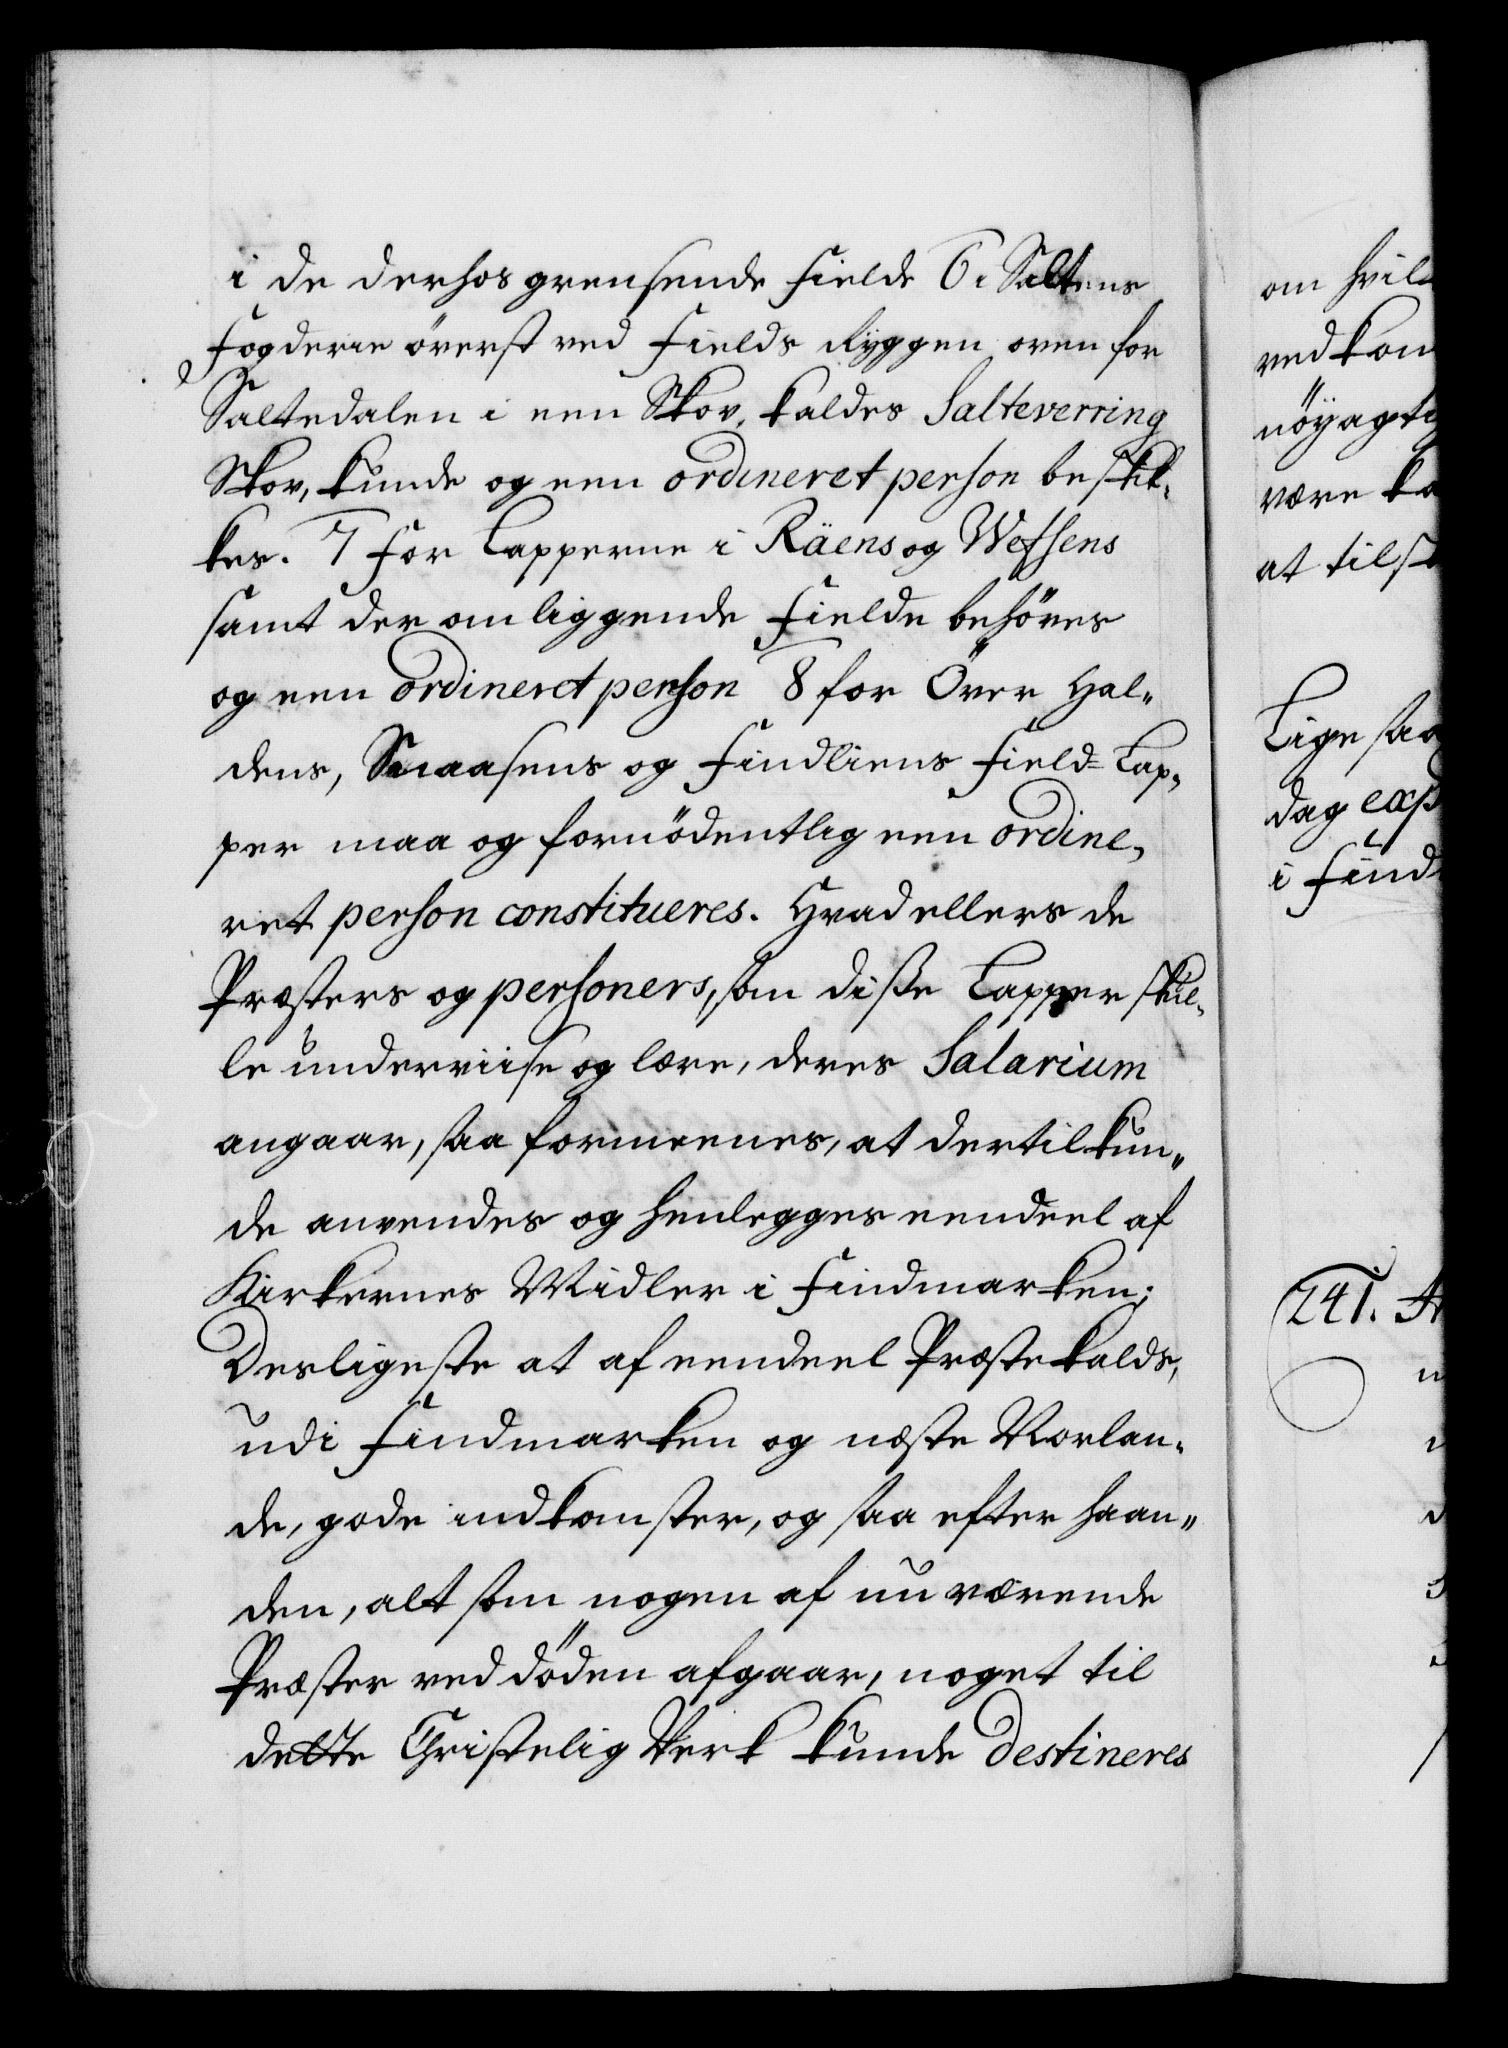 i de derhos grensende Fielde 6 i Saltens
Fogderie överst ved Fields Ryggen oven for
Saltedalen i een Skov, kaldes Salteverring
Skov, kunde og een ordineret person beskik,
kes. 7 For Lapperne i Räens og Wefsens
samt der omliggende Fielde behöves
og een ordineret person 8 for Över Hal„
dens, Snaasens og Findliens Field-Lap,
per maa og fornödentlig een ordine,
ret person constitueres. Hvad ellers de
Præsters og personers, som disse Lapper skul,
le underviise og lære, deres Salarium
angaar, saa formeenes, at dertil kun„
de anvendes og henlegges eendeel af
Kirkernes Midler i Findmarken;
Desligeste at af eendeel Præstekalds,
udi Findmarken og næste Norlan„
de, gode indkomster, og saa efter haan„
den, alt som nogen af nu værende
Præster ved döden afgaar, noget til
dette Christelig Verk kunde destineres
om hvil
vedkom
nöyagti
være ka
at tils
Lige saa
dag exp
i Find
241.